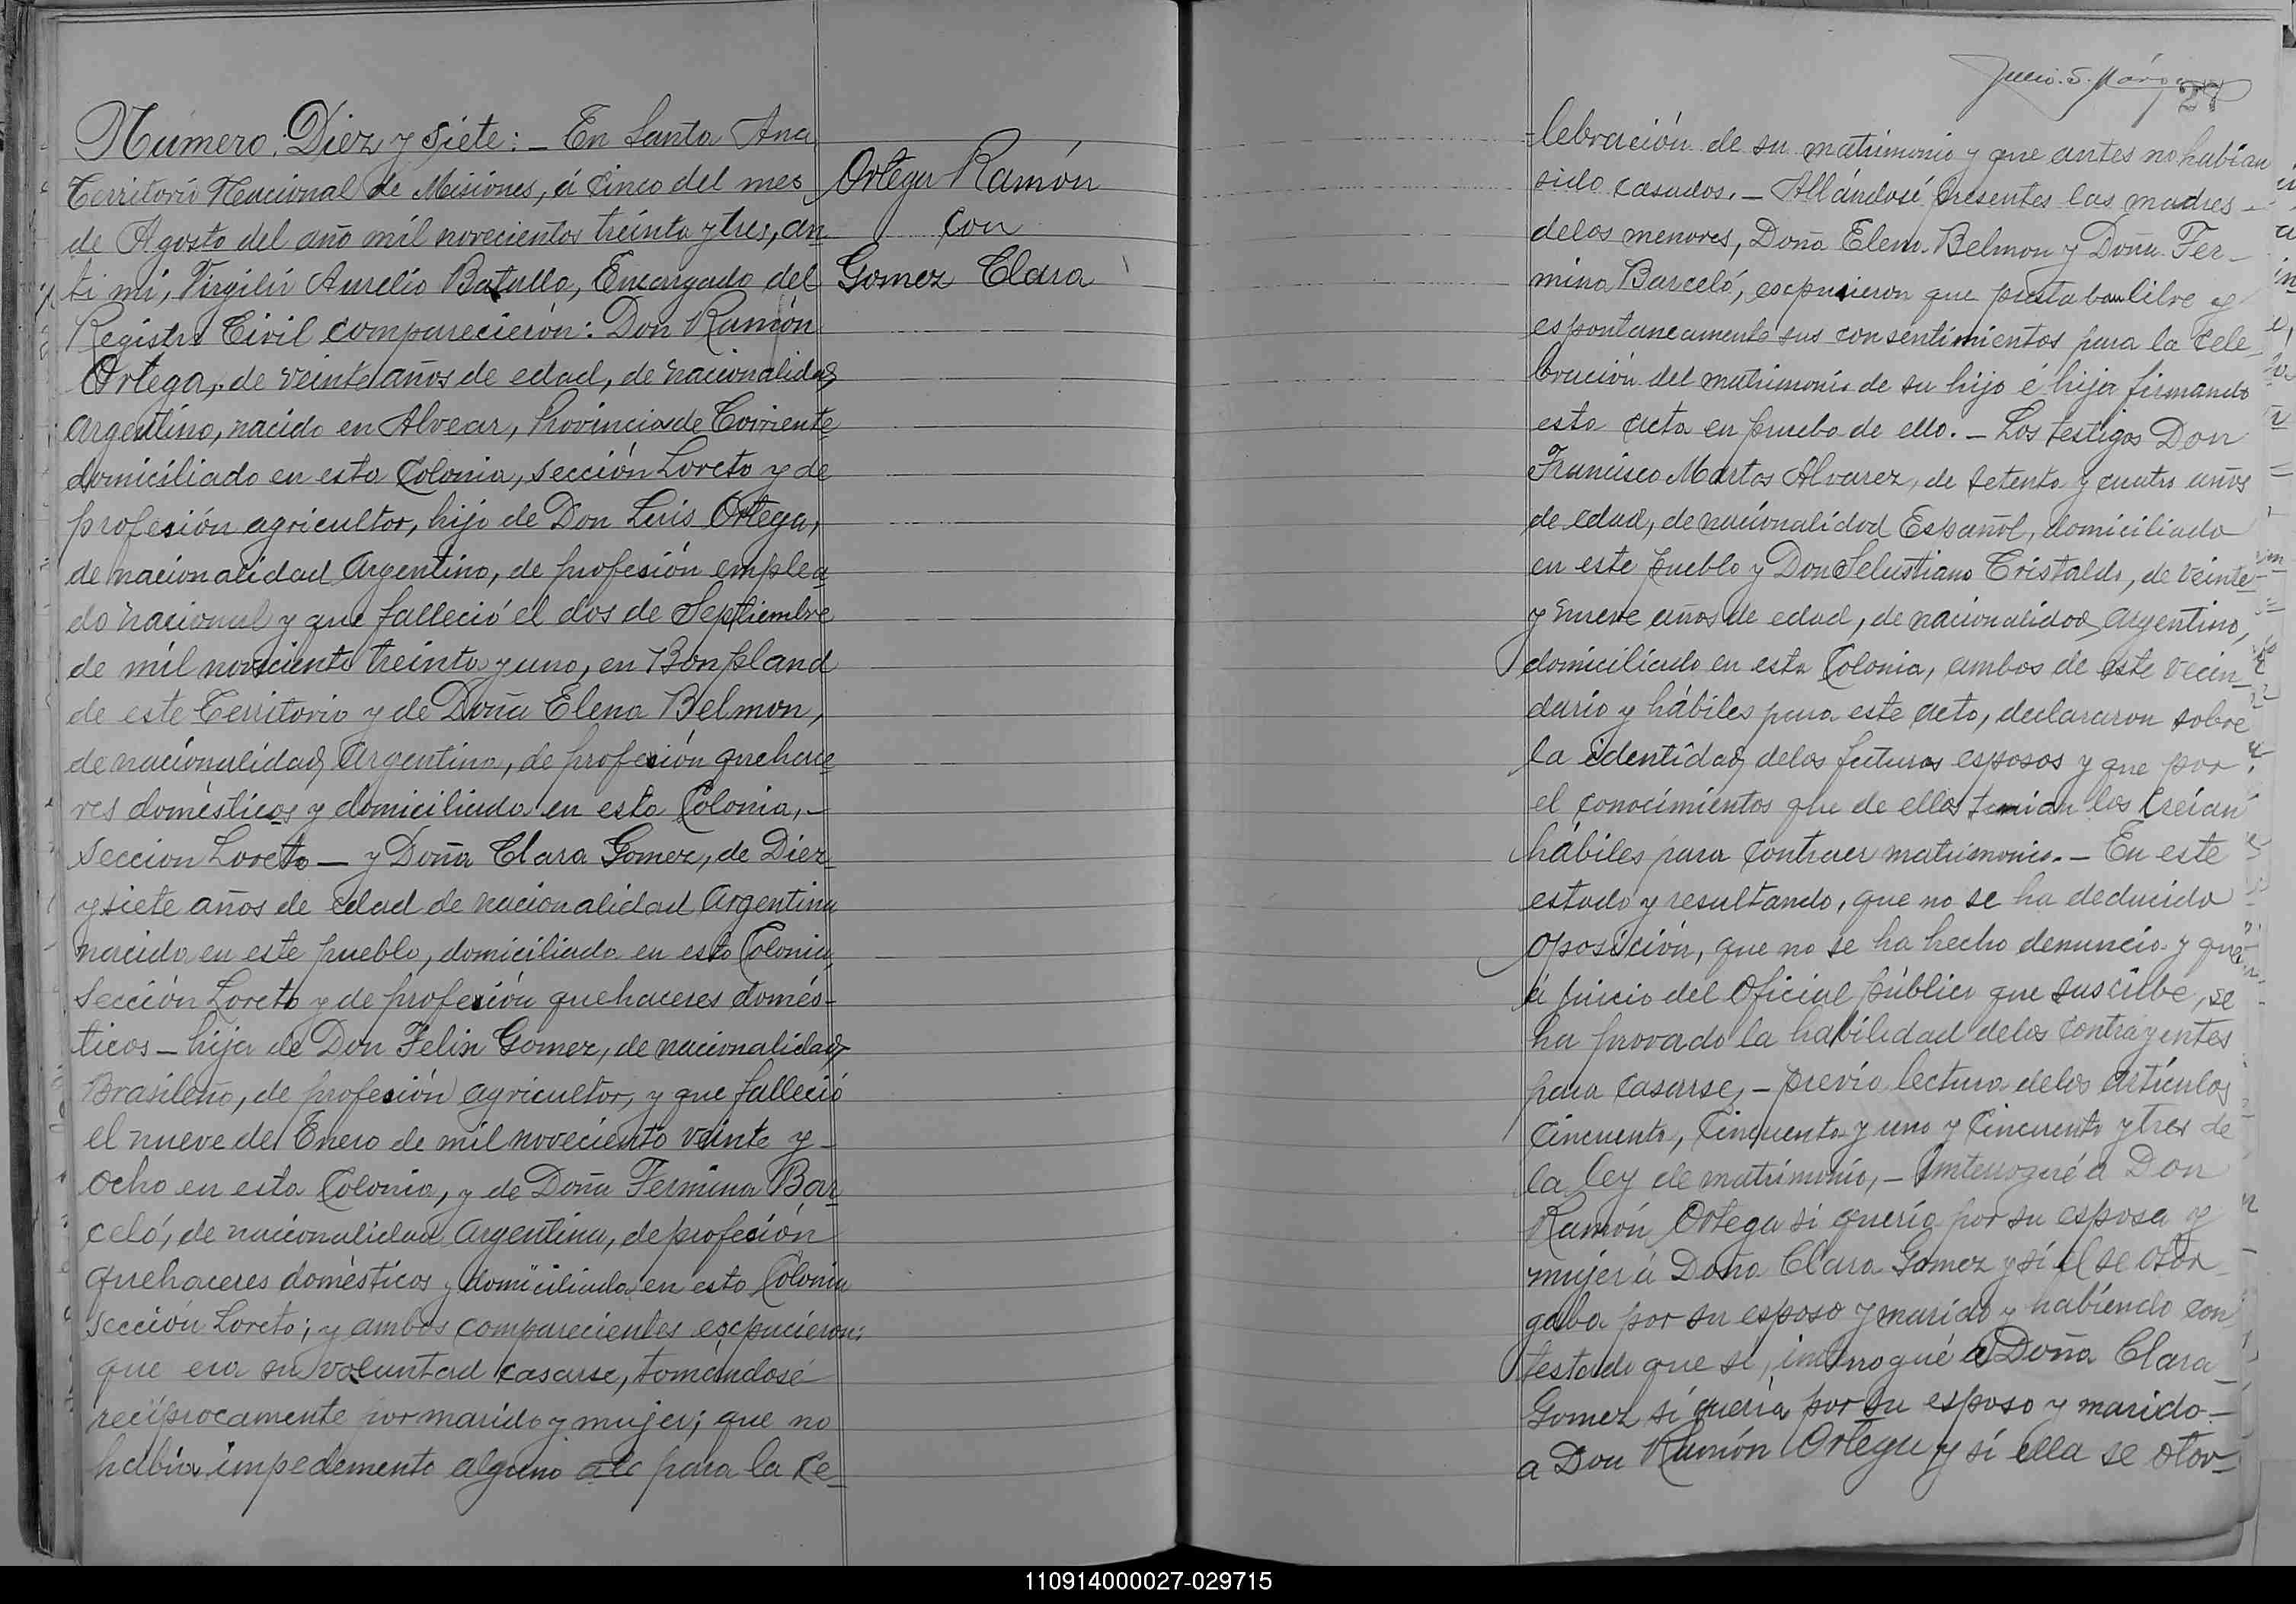 Número. Diez y siete: — En Santa Ana
Territorio Nacional de Misiones, á Cinco del mes
de Agosto del año mil novecientos treinta y tres, an
ti mi, Virgilio Aurelio Batalla, Encargado del
Registro Civil comparecieron: Don Ramón
Ortega, de veinte años de edad, de nacionalidad
argentino, nacido en Alvear, Provincia de Corriente
domiciliado en esta Colonia, sección Loreto y de
profesión agricultor, hijo de Don Luis Ortega,
de nacionalidad Argentino, de profesión emplea
do nacional y que falleció el dos de Septiembre
de mil noveciento treinta y uno, en Bonpland
de este Territorio y de Doña Elena Belmon,
de nacionalidad Argentina, de profesión quehace
res domésticos y domiciliada en esta Colonia, —
Seccion Loreto — y Doña Clara Gomez, de Diez
y siete años de edad de nacionalidad Argentina
nacida en este pueblo, domiciliada en esta Colonia,
Sección Loreto y de profesión quehaceres domés-
ticos — hija de Don Felix Gomez, de nacionalidad
Brasileño, de profesión agricultor, y que falleció
el nueve de Enero de mil noveciento veinte y —
ocho en esta Colonia, y de Doña Fermina Bar
celó, de nacionalidad Argentina, de profesión
quehaceres domésticos y domiciliada en esta Colonia
sección Loreto; y ambos comparecientes expucieron:
que era su voluntad casarse, tomándosé
recíprocamente por marido y mujer; que no
había impedemento alguno para la Ce-
Ortega Ramón
con
Gomez Clara
27
lebración de su matrimonio y que antes no habian
sido casados. — Allándosé presentes las madres —
delos menores, Doña Elena Belmon y Doña Fer—
mina Barceló, expusieron que prestaban libre y
espontaneamente sus consentimientos para la cele
bración del matrimonio de su hijo é hija firmando
esta acta en prueba de ello. — Los testigos Don
Francisco Martos Alvarez, de setenta y cuatro años
de edad, de nacionalidad Español, domiciliado
en este pueblo y Don Selustiano Cristaldo, de veinte
y nueve años de edad, de nacionalidad Argentino,
domiciliado en esta Colonia, ambos de este vecin
dario y hábiles para este acto, declararon sobre
la identidad delos futuros esposos y que por
el conocimientos que de ellos tenian los creían
hábiles para contraer matrimonio. — En este
estado y resultando, que no se ha deducido
oposición, que no se ha hecho denuncia y que
á juicio del Oficial público que suscribe, se
ha provado la habilidad delos contrayentes
para casarse, — previo lectura delos artículos
Cincuenta, Cincuenta y uno y Cincuenta y tres de
la ley de matrimonio, — interrogué a Don
Ramón Ortega si quería por su esposa y
mujer á Doña Clara Gomez y sí él se otor
gaba por su esposo y marido y habiendo con
testado que si, interrogué a Doña Clara
Gomez sí quería por su esposo y marido —
a Don Ramón Ortega y sí ella se otor—
110914000027-029715